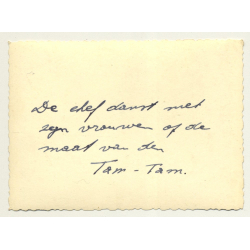 De chef danst met
zyn vrouwen op de
maat van den
Tam - Tam.